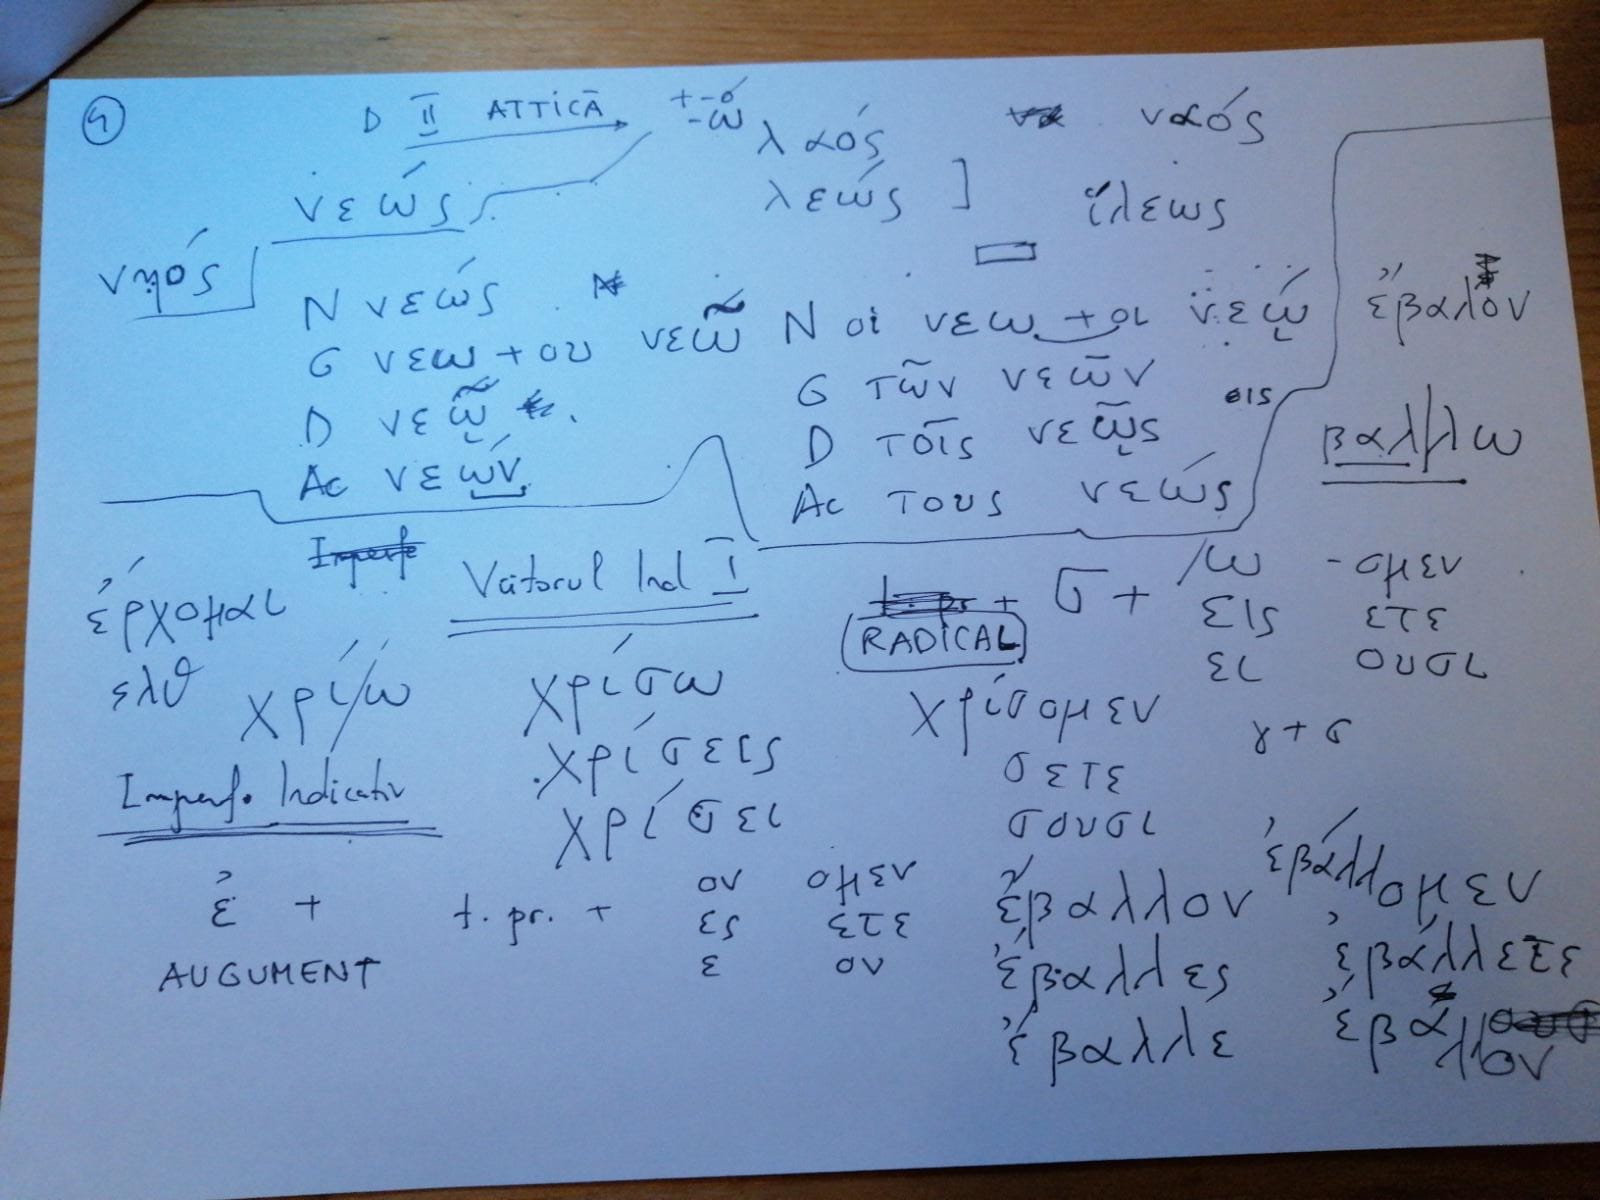 4
D II ATTICĂ +-ό -ώ
λαός ναός
νεώς λεώς ] ἵλεως
νηός
N νεώς
G νεω + ου νεῶ
D νεῷ
Ac νεών
N οἱ νεω + οι νεῴ
G τῶν νεῶν
D τοῖς νεῷς οις
Ac τους νεώς
ἔβαλον
βάλλω
ἔρχομαι
ελθ
Viitorul Ind I
RADICAL + σ + ω - ομεν
εις ετε
ει ουσι
χρί/ω
χρίσω χρίσομεν
χρίσεις σετε
χρίσει σουσι
γ + σ
Imperf. Indicativ
ἐ + t. pr. + ον ομεν
ες ετε
ε ον
AUGUMENT
ἔβαλλον ἐβάλλομεν
ἔβαλλες ἐβάλλετε
ἔβαλλε ἔβαλλον